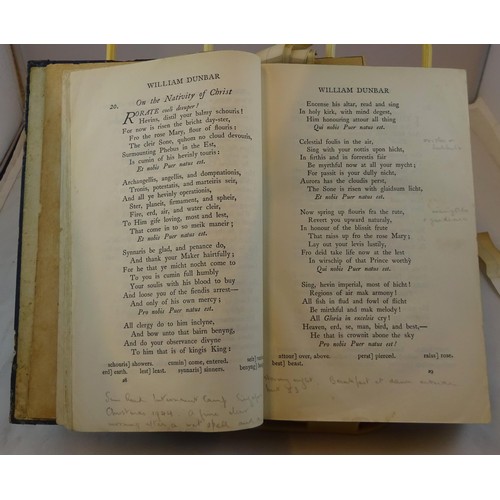 WILLIAM DUNBAR
20. On the Nativity of Christ
RORATE coeli desuper!
Hevins, distil your balmy schouris!
For now is risen the bricht day-ster,
Fro the rose Mary, flour of flouris:
The cleir Sone, quhom no cloud devouris,
Surmounting Phebus in the Est,
Is cumin of his hevinly touris:
Et nobis Puer natus est.
Archangellis, angellis, and dompnationis,
Tronis, potestatis, and marteiris seir,
And all ye hevinly operationis,
Ster, planeit, firmament, and spheir,
Fire, erd, air, and water cleir,
To Him gife loving, most and lest,
That come in to so meik maneir;
Et nobis Puer natus est.
Synnaris be glad, and penance do,
And thank your Maker hairtfully;
For he that ye micht nocht come to
To you is cumin full humbly
Your soulis with his blood to buy
And loose you of the fiendis arrest—
And only of his own mercy;
Pro nobis Puer natus est.
All clergy do to him inclyne,
And bow unto that bairn benyng,
And do your observance divyne
To him that is of kingis King:
schouris] showers. cumin] come, entered. seir]
erd] earth. lest] least. synnaris] sinners. benyng]
28
WILLIAM DUNBAR
Encense his altar, read and sing
In holy kirk, with mind degest,
Him honouring attour all thing
Qui nobis Puer natus est.
Celestial foulis in the air,
Sing with your nottis upon hicht,
In firthis and in forrestis fair
Be myrthful now at all your mycht;
For passit is your dully nicht,
Aurora has the cloudis perst,
The Sone is risen with glaidsum licht,
Et nobis Puer natus est.
Now spring up flouris fra the rute,
Revert you upward naturaly,
In honour of the blissit frute
That raiss up fro the rose Mary;
Lay out your levis lustily,
Fro deid take life now at the lest
In wirschip of that Prince worthy
Qui nobis Puer natus est.
Sing, hevin imperial, most of hicht!
Regions of air mak armony!
All fish in flud and fowl of flicht
Be mirthful and mak melody!
All Gloria in excelsis cry!
Heaven, erd, se, man, bird, and best,—
He that is crownit abone the sky
Pro nobis Puer natus est!
attour] over, above. perst] pierced. raiss] rose.
best] beast.